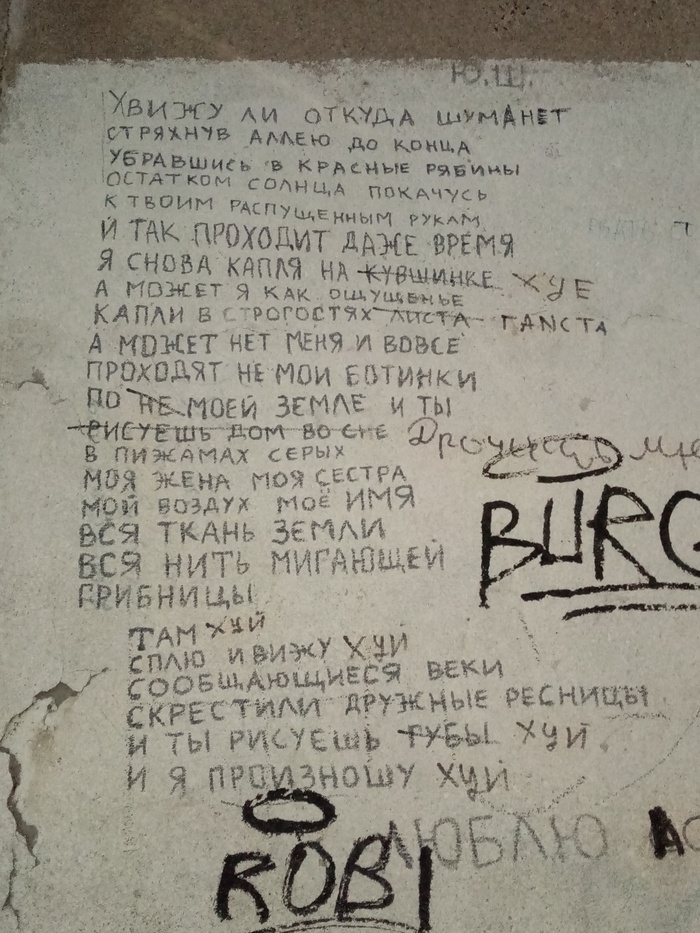 Ю.Ш.
УВИЖУ ЛИ ОТКУДА ШУМАНЕТ
СТРЯХНУВ АЛЛЕЮ ДО КОНЦА
УБРАВШИСЬ В КРАСНЫЕ РЯБИНЫ
ОСТАТКОМ СОЛНЦА ПОКАЧУСЬ
К ТВОИМ РАСПУЩЕННЫМ РУКАМ
И ТАК ПРОХОДИТ ДАЖЕ ВРЕМЯ
Я СНОВА КАПЛЯ НА КУВШИНКЕ ХУЕ
А МОЖЕТ Я КАК ОЩУЩЕНЬЕ
КАПЛИ В СТРОГОСТЯХ ЛИСТА ГАNСТА
А МОЖЕТ НЕТ МЕНЯ И ВОВСЕ
ПРОХОДЯТ НЕ МОИ БОТИНКИ
ПО НЕ МОЕЙ ЗЕМЛЕ И ТЫ
РИСУЕШЬ ДОМ ВО СНЕ
В ПИЖАМАХ СЕРЫХ
МОЯ ЖЕНА МОЯ СЕСТРА
МОЙ ВОЗДУХ МОЁ ИМЯ
ВСЯ ТКАНЬ ЗЕМЛИ
BURG
ВСЯ НИТЬ МИГАЮЩЕЙ
ГРИБНИЦЫ
ТАМ ХУЙ
СПЛЮ И ВИЖУ ХУЙ
СООБЩАЮЩИЕСЯ ВЕКИ
СКРЕСТИЛИ ДРУЖНЫЕ РЕСНИЦЫ
И ТЫ РИСУЕШЬ ГУБЫ ХУЙ
И Я ПРОИЗНОШУ ХУЙ
ЛЮБЛЮ
ROBI